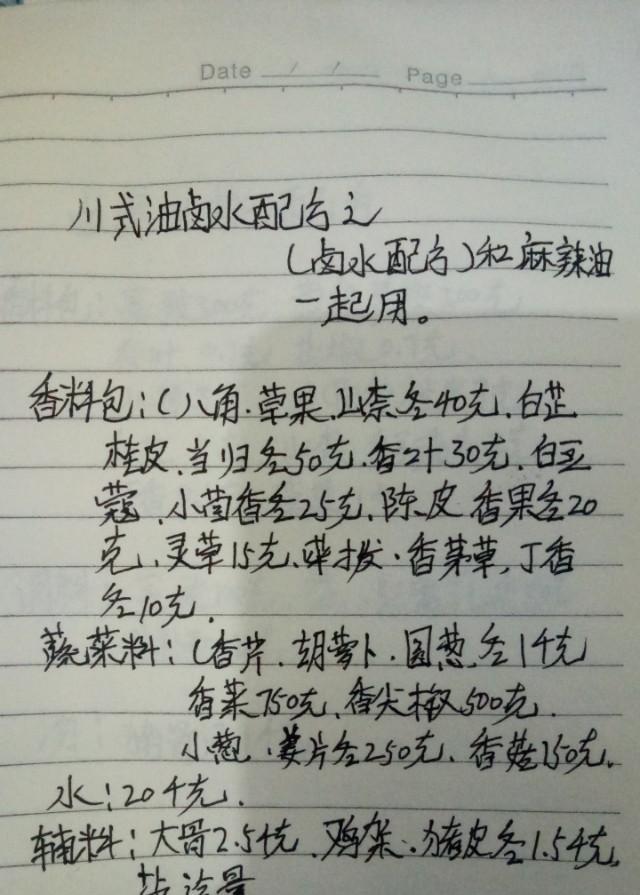 Date / / Page
川式油卤水配方之
(卤水配方)和麻辣油
一起用。
香料包:(八角.草果.山柰各40克.白芷
桂皮.当归各50克.香叶30克.白豆
蔻.小茴香各25克.陈皮.香果各20
克.灵草15克.荜拨.香茅草,丁香
各10克.
蔬菜料:(香芹.胡萝卜.圆葱.各1千克
香菜750克.香尖椒500克.
小葱.姜片各250克.香菇150克.
水:20千克.
辅料:大骨2.5千克.鸡架.猪皮各1.5千克